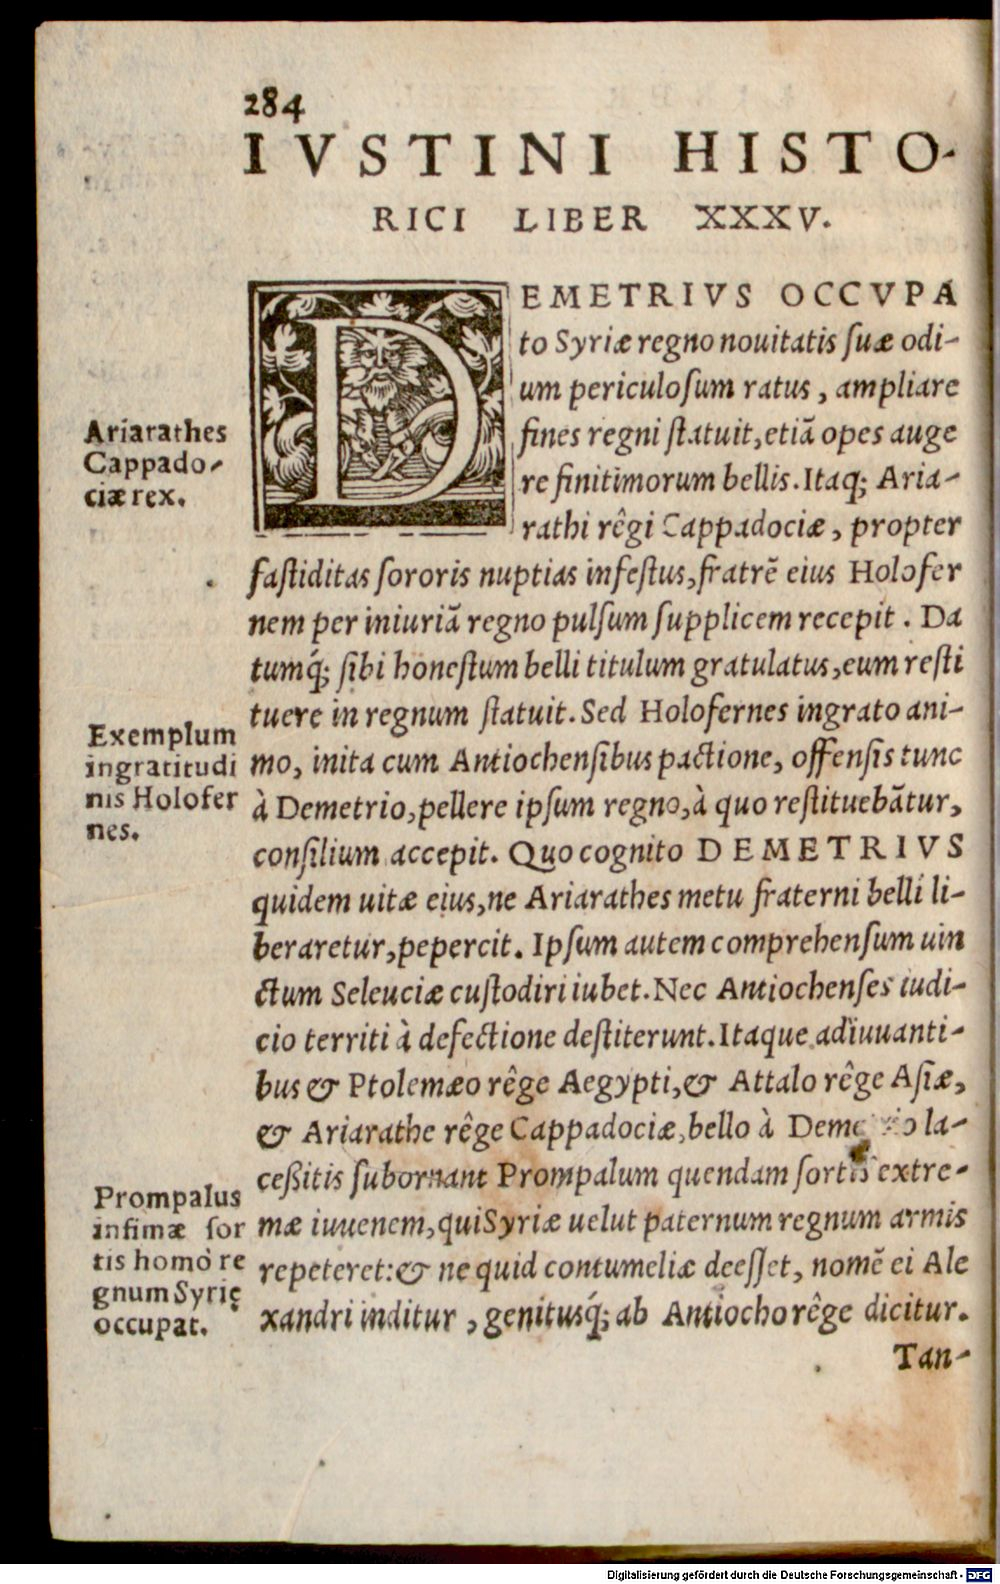 284
IVSTINI HISTO-
RICI LIBER XXXV.
DEMETRIVS OCCVPA
to Syriæ regno nouitatis suæ odi-
um periculosum ratus, ampliare
fines regni statuit, etiã opes auge
re finitimorum bellis. Itaq; Aria-
rathi rêgi Cappadociæ, propter
fastiditas sororis nuptias infestus, fratrẽ eius Holofer
nem per iniuriã regno pulsum supplicem recepit. Da
tumq́; sibi honestum belli titulum gratulatus, eum resti
tuere in regnum statuit. Sed Holofernes ingrato ani-
mo, inita cum Antiochensibus pactione, offensis tunc
à Demetrio, pellere ipsum regno, à quo restituebãtur,
consilium accepit. Quo cognito DEMETRIVS
quidem uitæ eius, ne Ariarathes metu fraterni belli li-
beraretur, pepercit. Ipsum autem comprehensum uin
ctum Seleuciæ custodiri iubet. Nec Antiochenses iudi-
cio territi à defectione destiterunt. Itaque adiuuanti-
bus & Ptolemæo rêge Aegypti, & Attalo rêge Asiæ,
& Ariarathe rêge Cappadociæ, bello à Demetrio la-
ceßitis subornant Prompalum quendam sortis extre-
mæ iuuenem, qui Syriæ uelut paternum regnum armis
repeteret: & ne quid contumeliæ deesset, nomẽ ei Ale
xandri inditur, genitusq́; ab Antiocho rêge dicitur.
Tan-
Ariarathes
Cappado-
ciæ rex.
Exemplum
ingratitudi
nis Holofer
nes.
Prompalus
infimæ sor
tis homo re
gnum Syrię
occupat.
Digitalisierung gefördert durch die Deutsche Forschungsgemeinschaft - DFG